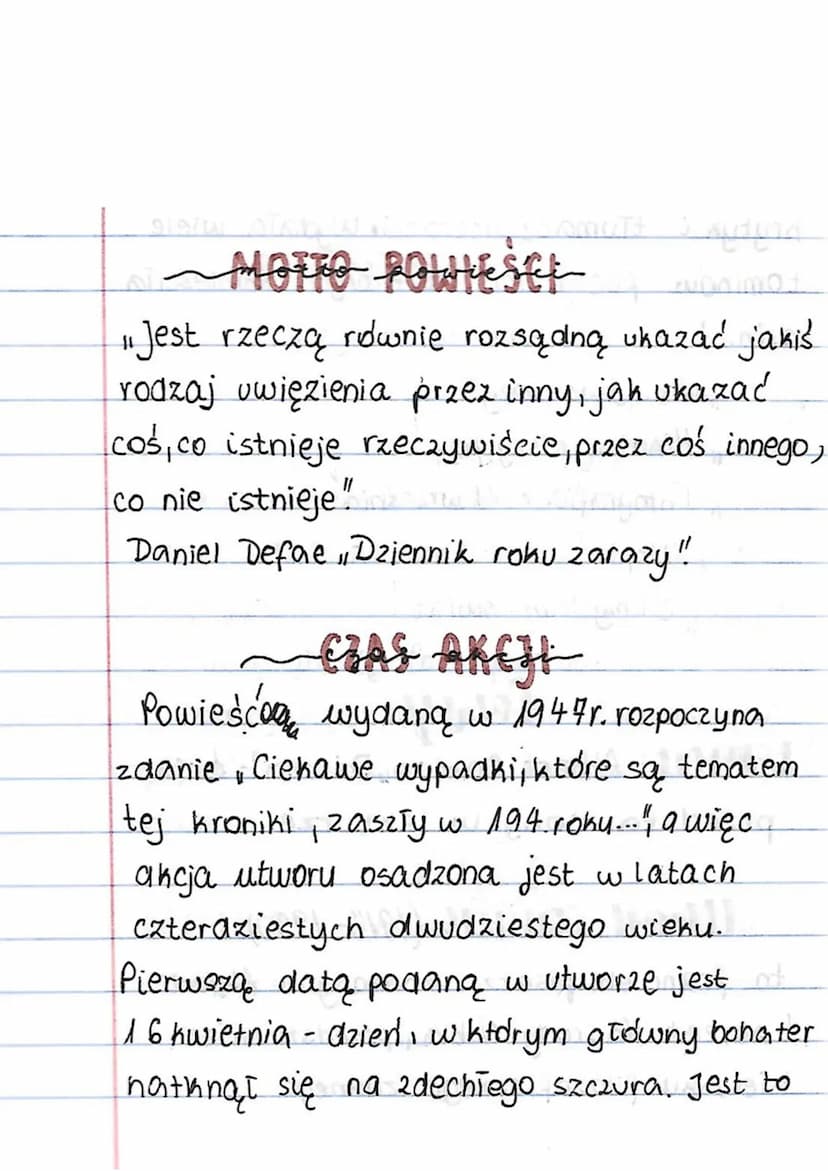 MOTTO POWIEŚCI
„Jest rzeczą równie rozsądną ukazać jakiś
rodzaj uwięzienia przez inny, jak ukazać
coś, co istnieje rzeczywiście, przez coś innego,
co nie istnieje".
Daniel Defae „Dziennik roku zarazy".
CZAS AKCJI
Powieść wydaną w 1947r. rozpoczyna
zdanie „Ciekawe wypadki, które są tematem
tej kroniki, zaszły w 194. roku...", a więc
akcja utworu osadzona jest w latach
czterdziestych dwudziestego wieku.
Pierwszą datą podaną w utworze jest
16 kwietnia - dzień, w którym główny bohater
natknął się na zdechłego szczura. Jest to